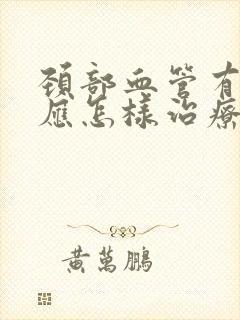 頸部血管有
應怎樣治療
黃萬鵬